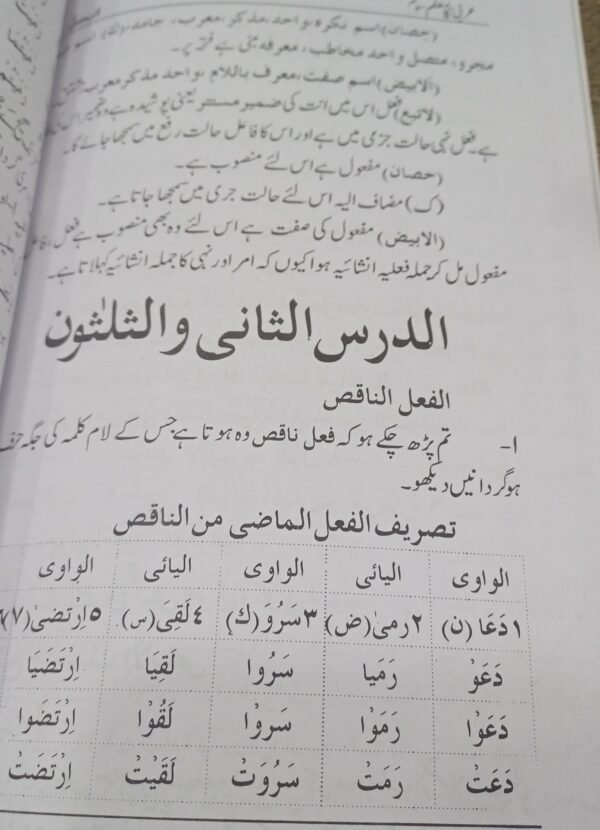 عربی کا معلم
(حصان) اسم نکرہ، واحد، مذکر، معرب، جامد،
مجرور، متصل واحد مخاطب، معرفہ مبنی ہے فتحہ پر۔
(الابیض) اسم صفت، معرف باللام، واحد مذکر معرب
(لاتبع) فعل اس میں انت کی ضمیر مستتر یعنی پوشیدہ ہے
ہے۔ فعل نہی حالت جزمی میں ہے اور اس کا فاعل حالت رفع میں سمجھا جائے گا۔
(حصان) مفعول ہے اس لئے منصوب ہے۔
(ک) مضاف الیہ اس لئے حالت جری میں سمجھا جاتا ہے۔
(الابیض) مفعول کی صفت ہے اس لئے وہ بھی منصوب ہے فعل، فاعل
مفعول مل کر جملہ فعلیہ انشائیہ ہوا کیوں کہ امر اور نہی کا جملہ انشائیہ کہلاتا ہے۔
الدرس الثانی والثلثون
الفعل الناقص
۱- تم پڑھ چکے ہو کہ فعل ناقص وہ ہوتا ہے جس کے لام کلمہ کی جگہ حرف
ہو گردانیں دیکھو۔
تصریف الفعل الماضی من الناقص
الواوی الیائی الواوی الیائی الواوی
۱ دَعَا (ن) ۲ رمیٰ (ض) ۳ سَرُوَ (ك) ٤ لَقِیَ (س) ٥ اِرْتَضیٰ (۷)
دَعَوَا رَمَیَا سَرُوا لَقِیَا اِرْتَضَیَا
دَعَوْا رَمَوْا سَروْا لَقُوْا اِرْتَضَوا
دَعَتْ رَمَتْ سَرُوَتْ لَقِیَتْ اِرْتَضَتْ